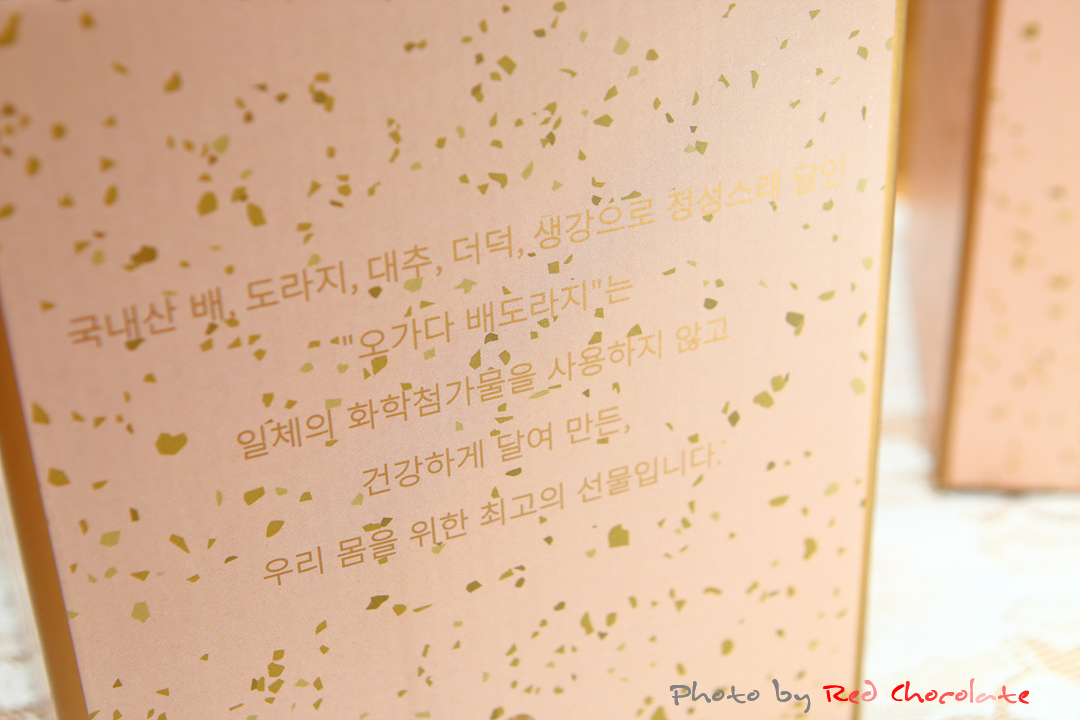 국내산 배, 도라지, 대추, 더덕, 생강으로 정성스레 달인
"오가다 배도라지"는
일체의 화학첨가물을 사용하지 않고
건강하게 달여 만든,
우리 몸을 위한 최고의 선물입니다.
Photo by Red Chocolate